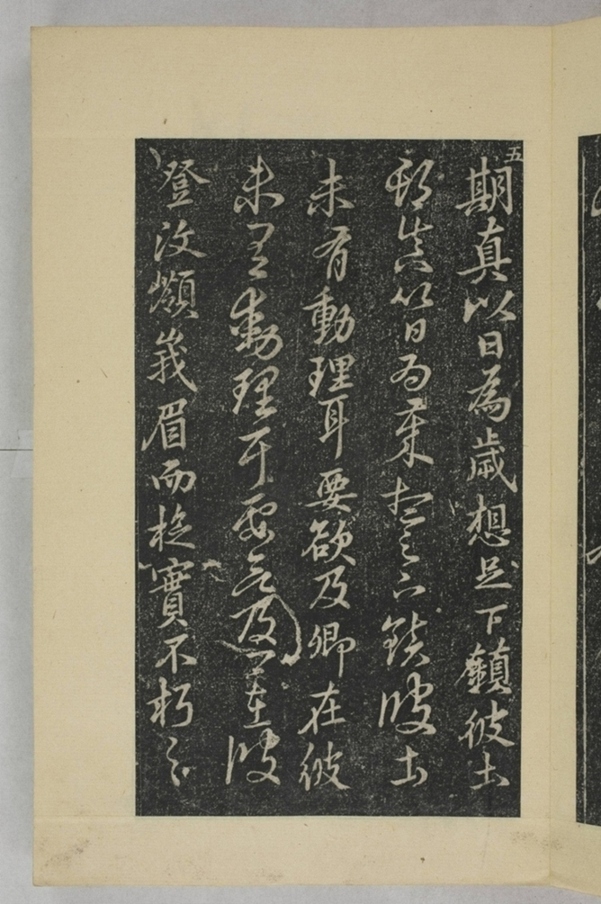 五
期真以日為歲想足下鎮彼土
期真以日為歲想足下鎮彼土
未有動理耳要欲及卿在彼
未有動理耳要欲及卿在彼
登汶嶺峩眉而旋實不朽之